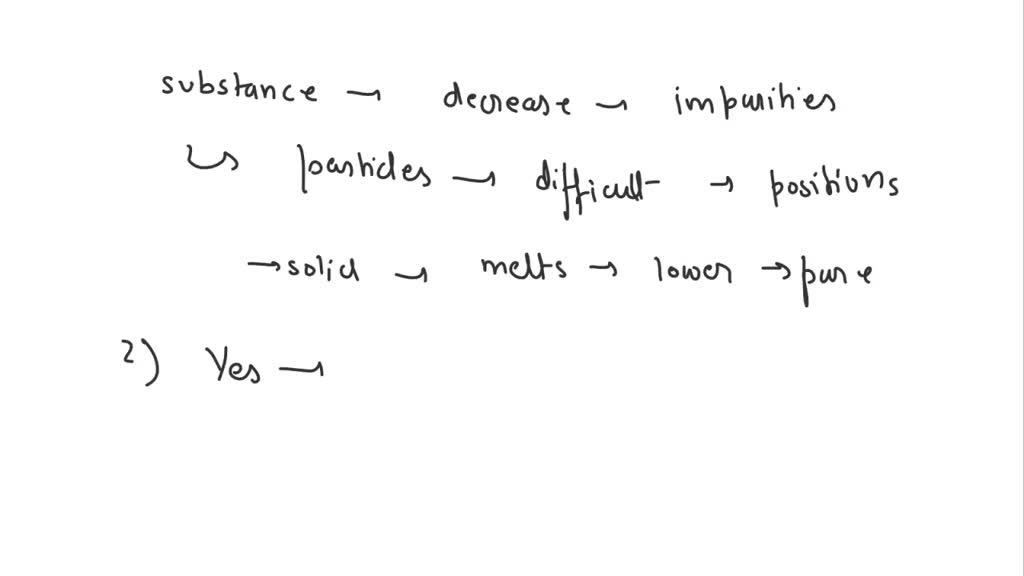 substance → decrease → impurities
↳ particles → difficult → positions
→ solid → melts → lower → pure
2) Yes →